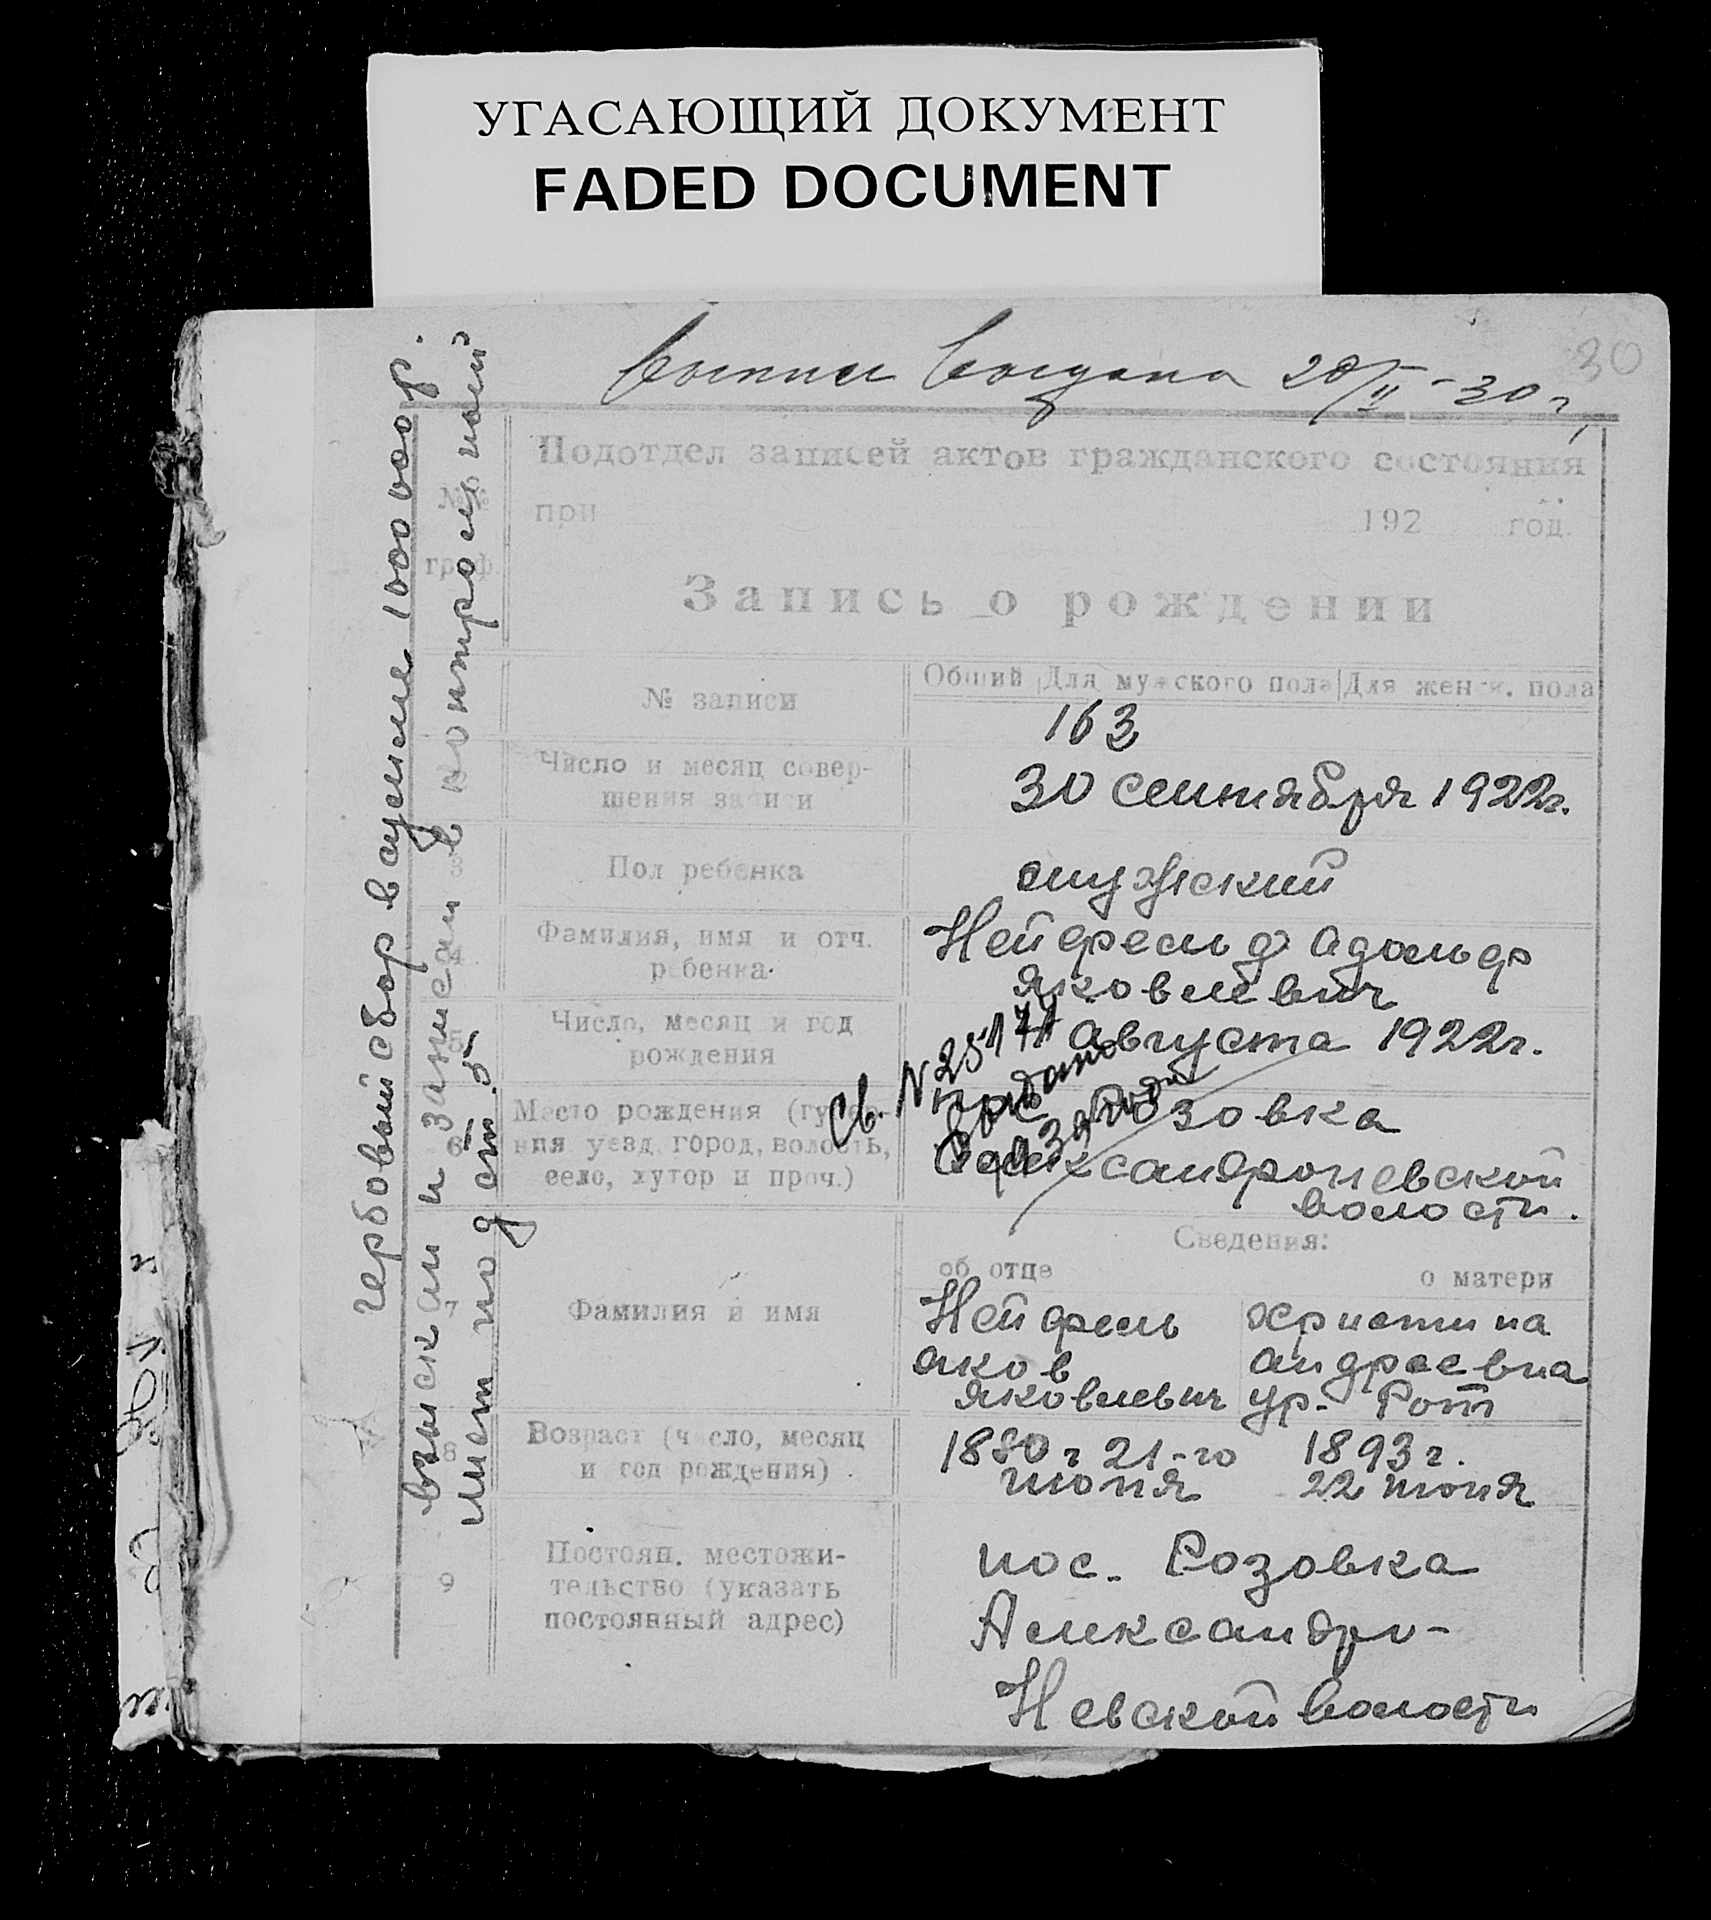 УГАСАЮЩИЙ ДОКУМЕНТ
FADED DOCUMENT
30
Копия Создана 28/II-30г.
Подотдел записей актов гражданского состояния
№№
граф.
при 192 год.
Запись о рождении
№ записи
Общий Для мужского пола Для женск. пола
163
Число и месяц совер-
шения записи
30 сентября 1922г.
3
Пол ребенка
мужский
4
Фамилия, имя и отч.
ребенка
Нейфельд Адольф
Яковлевич
5
Число, месяц и год
рождения
августа 1922г.
6
Место рождения (губер-
ния уезд, город, волость,
село, хутор и проч.)
Розовка
Александроневской
волости.
Св. N 2517
Сведения:
об отце
о матери
7
Фамилия и имя
Нейфель
Яков
Яковлевич
Христина
Андреевна
ур. Рот
8
Возраст (число, месяц
и год рождения)
1880г 21-го
июня
1893г.
22 июня
9
Постоян. местожи-
тельство (указать
постоянный адрес)
пос. Розовка
Александро-
Невской волости
гербовый сбор в сумме 1000000р.
взыскан и записан в контрольный
лист под ст. 5